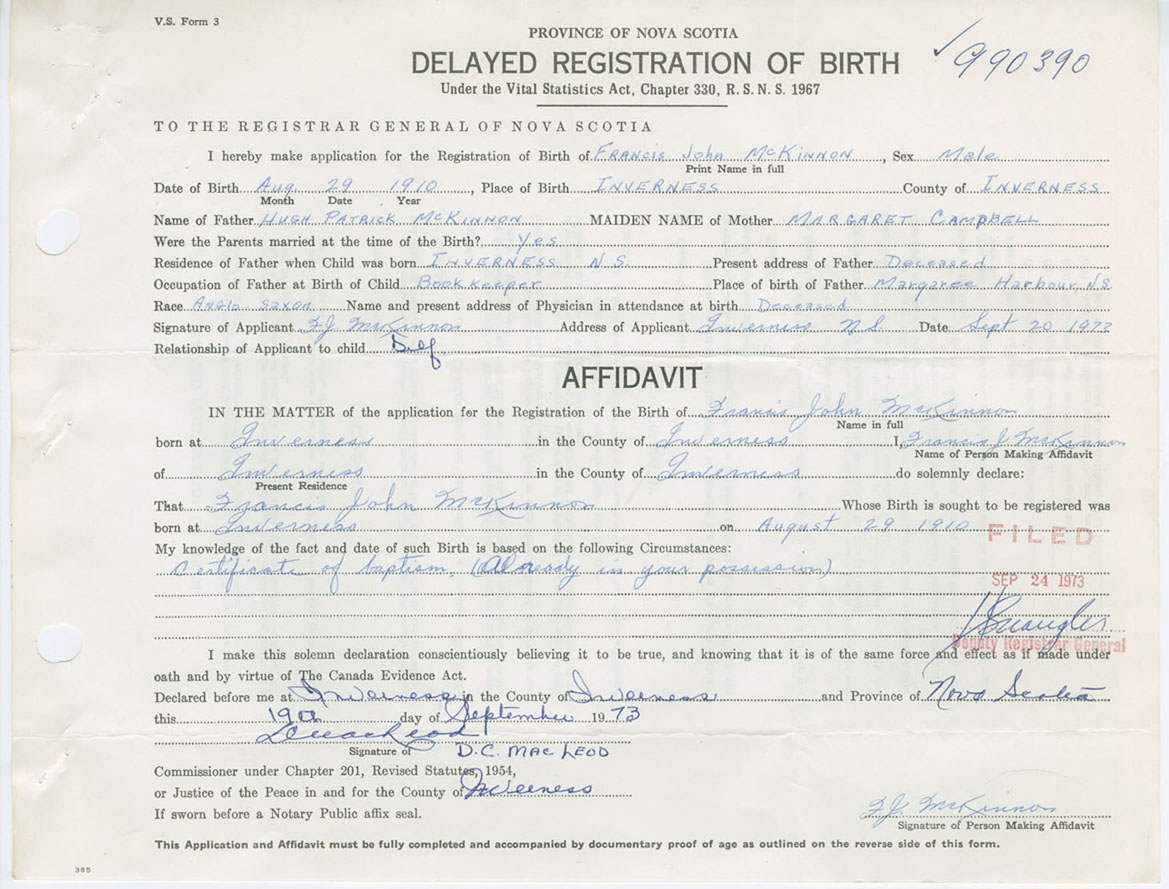 V.S. Form 3
PROVINCE OF NOVA SCOTIA
DELAYED REGISTRATION OF BIRTH
✓990390
Under the Vital Statistics Act, Chapter 330, R. S. N. S. 1967
TO THE REGISTRAR GENERAL OF NOVA SCOTIA
I hereby make application for the Registration of Birth of Francis John McKinnon, Sex Male
Print Name in full
Date of Birth Aug. 29 1910, Place of Birth Inverness County of Inverness
Month Date Year
Name of Father Hugh Patrick McKinnon MAIDEN NAME of Mother Margaret Campbell
Were the Parents married at the time of the Birth? Yes
Residence of Father when Child was born Inverness N.S. Present address of Father Deceased
Occupation of Father at Birth of Child Bookkeeper Place of birth of Father Margaree Harbour, N.S.
Race Anglo Saxon Name and present address of Physician in attendance at birth Deceased
Signature of Applicant FJ McKinnon Address of Applicant Inverness N S Date Sept 20 1973
Relationship of Applicant to child Self
AFFIDAVIT
IN THE MATTER of the application for the Registration of the Birth of Francis John McKinnon
Name in full
born at Inverness in the County of Inverness I, Francis J McKinnon
Name of Person Making Affidavit
of Inverness in the County of Inverness do solemnly declare:
Present Residence
That Francis John McKinnon Whose Birth is sought to be registered was
born at Inverness on August 29 1910
FILED
My knowledge of the fact and date of such Birth is based on the following Circumstances:
Certificate of baptism, (Already in your possession)
SEP 24 1973
Deputy Registrar General
I make this solemn declaration conscientiously believing it to be true, and knowing that it is of the same force and effect as if made under
oath and by virtue of The Canada Evidence Act.
Declared before me at Inverness in the County of Inverness and Province of Nova Scotia
this day of September 1973
Signature of D.C. MacLeod
Commissioner under Chapter 201, Revised Statutes, 1954,
or Justice of the Peace in and for the County of Inverness
If sworn before a Notary Public affix seal.
FJ McKinnon
Signature of Person Making Affidavit
This Application and Affidavit must be fully completed and accompanied by documentary proof of age as outlined on the reverse side of this form.
385